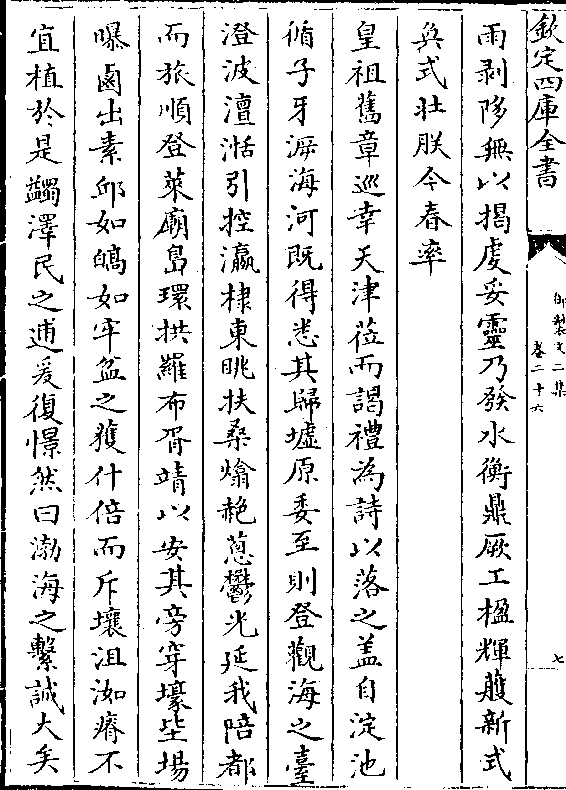 欽定四庫全書
御製文二集
卷二十六
七
雨剥陊無以揭虔妥靈乃發水衡鼎厥工楹輝雘新式
奐式壯朕今春率
皇祖舊章巡幸天津蒞而謁禮為詩以落之盖自淀池
循子牙泝海河既得悉其歸墟原委至則登觀海之臺
澄波澶湉引控瀛棣東眺扶桑熻赩蔥鬱光延我陪都
而旅順登萊廟島環拱羅布胥靖以安其旁穿壕坒場
曝鹵出素邱如皜如牢盆之獲什倍而斥壤沮洳瘠不
宜植於是蠲澤民之逋爰復憬然曰渤海之繫誠大矣